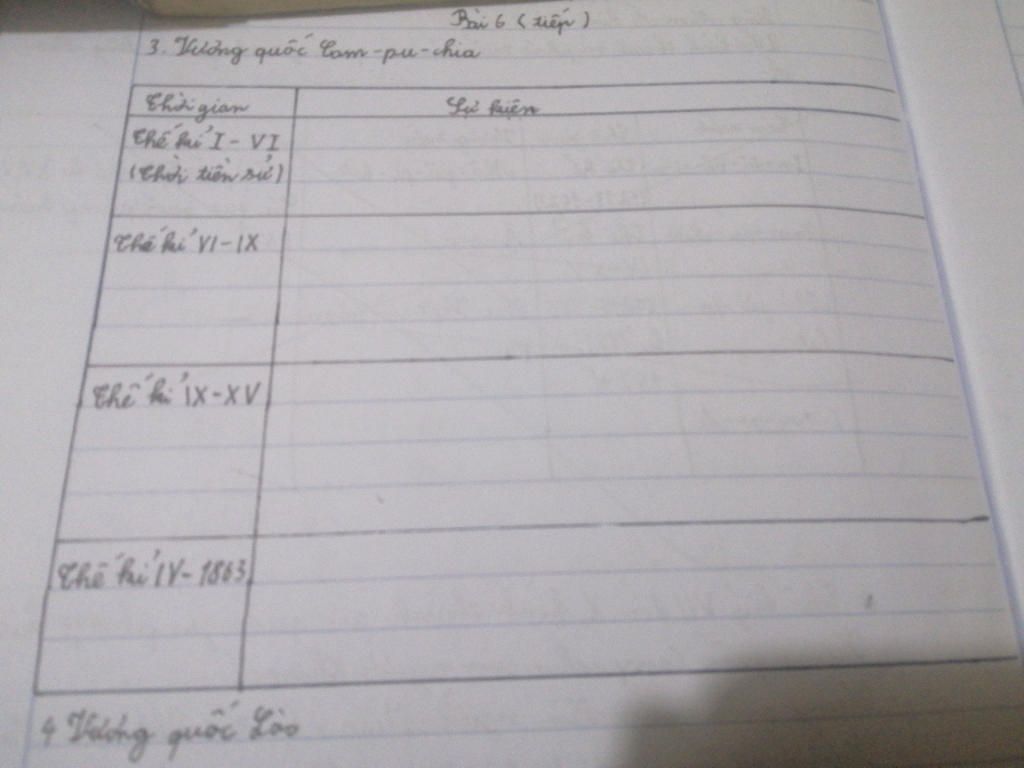 Bài 6 (tiếp)
3. Vương quốc Cam-pu-chia
Thời gian
Sự kiện
Thế kỉ I - VI
(Thời tiền sử)
Thế kỉ VI - IX
Thế kỉ IX - XV
Thế kỉ IV - 1863
4 Vương quốc Lào